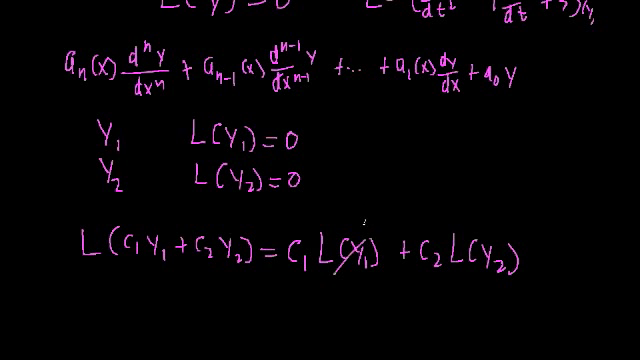 L(Y)=0
aₙ(x) dⁿy/dxⁿ + aₙ₋₁(x) dⁿ⁻¹y/dxⁿ⁻¹ + ... + a₁(x) dy/dx + a₀ y
Y₁ L(Y₁)=0
Y₂ L(Y₂)=0
L(C₁Y₁+C₂Y₂)=C₁L(Y₁)+C₂L(Y₂)